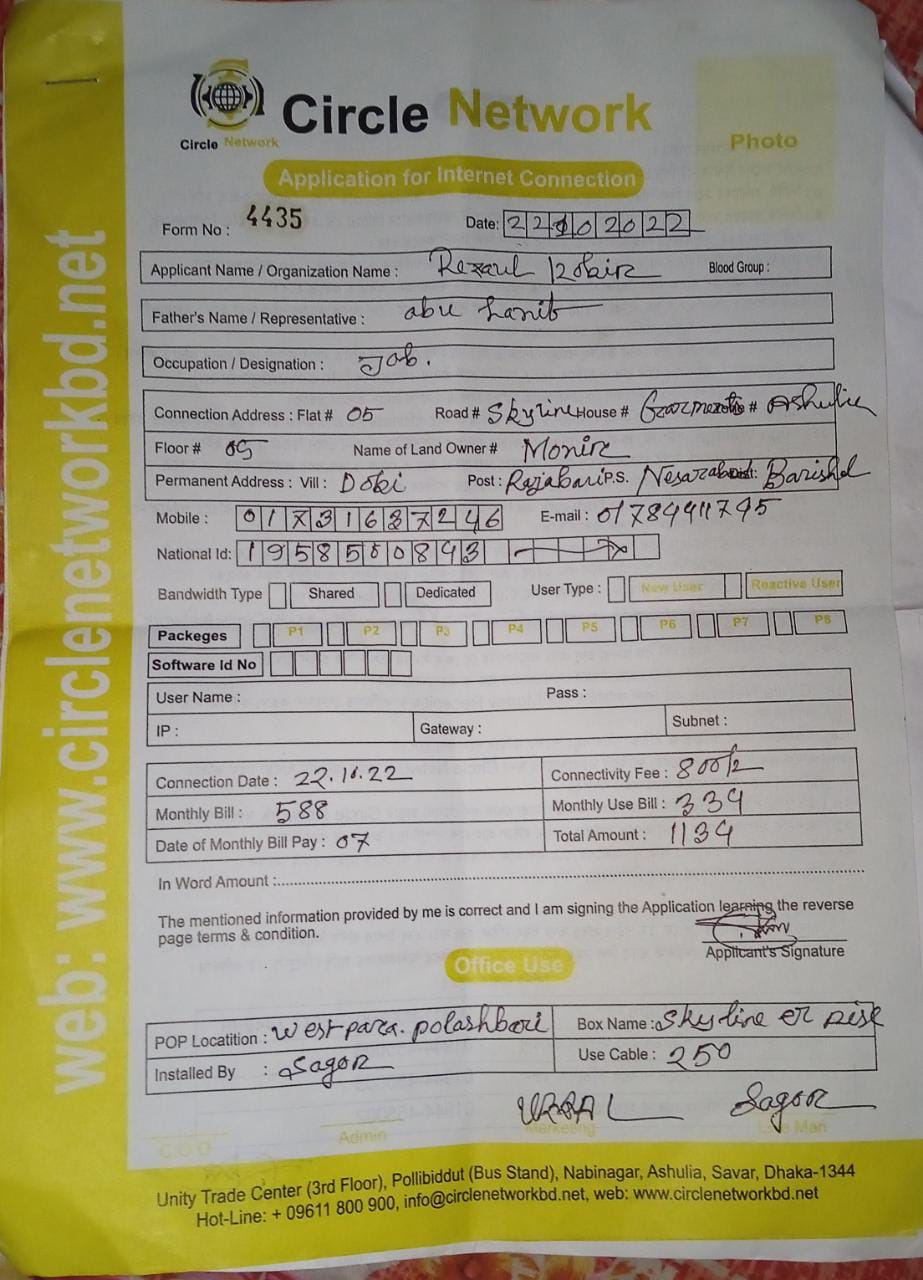 web: www.circlenetworkbd.net
Circle Network
Circle Network
Photo
Application for Internet Connection
Form No : 4435 Date: 22 10 2022
Applicant Name / Organization Name : Rezaul Kobir Blood Group :
Father's Name / Representative : abu hanif
Occupation / Designation : Job.
Connection Address : Flat # 05 Road # Skyline House # Garments # Ashulia
Floor # 05 Name of Land Owner # Monir
Permanent Address : Vill : Dobi Post : Rajabari P.S. Nesarabad Dist: Barishal
Mobile : 01731637246 E-mail : 01784911795
National Id: 1958500843
Bandwidth Type Shared Dedicated User Type : New User Reactive User
Packeges P1 P2 P3 P4 P5 P6 P7 P8
Software Id No
User Name : Pass :
IP : Gateway : Subnet :
Connection Date : 22.10.22 Connectivity Fee : 800/=
Monthly Bill : 588 Monthly Use Bill : 334
Date of Monthly Bill Pay : 07 Total Amount : 1134
In Word Amount :
The mentioned information provided by me is correct and I am signing the Application learning the reverse
page terms & condition.
Applicant's Signature
Office Use
POP Locatition : West para. polashbari Box Name : Skyline er pise
Installed By : Sagor Use Cable : 250
Sagor
C.O.O Admin Marketing Line Man
Unity Trade Center (3rd Floor), Pollibiddut (Bus Stand), Nabinagar, Ashulia, Savar, Dhaka-1344
Hot-Line: + 09611 800 900, info@circlenetworkbd.net, web: www.circlenetworkbd.net